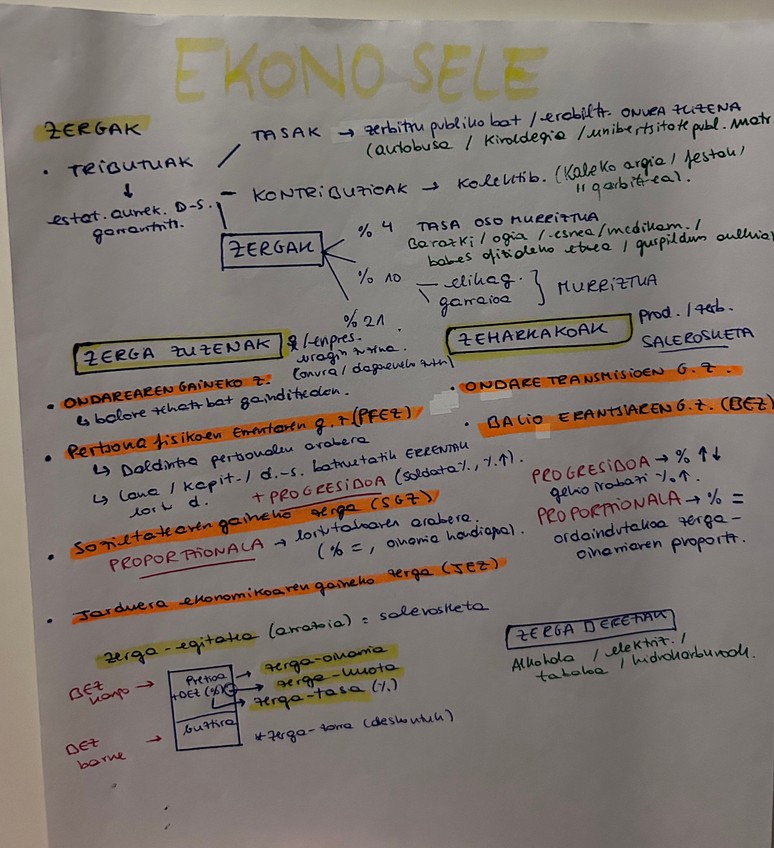 EKONO SELE
ZERGAK
• TRIBUTUAK
estat. aurrek. D-S.
garrantzits.
TASAK → zerbitzu publiko bat / erabiltz. ONURA ZUZENA
(autobusa / kiroldegia / unibertsitate publ. matr
- KONTRIBUZIOAK → Kolektib. (Kaleko argia / festak /
" garbitzea).
ZERGAK
% 4 TASA OSO MURRIZTUA
Barazki / ogia / esnea / medikam. /
babes ofizialeko etxea / gurpildun aulkia
% 10 elikag.
garraioa
MURRIZTUA
% 21
ZERGA ZUZENAK
/-enpres.
eragin zuzena.
ZEHARKAKOAK
Prod. / zerb.
SALEROSKETA
• ONDAREAREN GAINEKO Z.
↳ balore zehatz bat gainditzean.
• Pertsona fisikoen Errentaren g. z (PFEZ)
↳ Baldintza pertsonalen arabera
↳ Lana / Kapit. / d.-s. batzuetatik ERRENTAK
lortu d.
+ PROGRESIBOA (soldata %, %↑).
• Sozietatearen gaineko zerga (SGZ)
PROPORTZIONALA → lortutakoaren arabera.
(% =, oinarria handiagoa).
• Jarduera ekonomikoaren gaineko zerga (JEZ)
• ONDARE TRANSMISIOEN G. Z.
• BALIO ERANTSIAREN G. Z. (BEZ)
PROGRESIBOA → % ↑↓
gehio irabazi %↑.
PROPORTZIONALA → % =
ordaindutakoa zerga-
oinarriaren proportz.
zerga-egitatea (arrazoia) = salerosketa
BEZ kanpo →
Prezioa → zerga-oinarria
+ BEZ (%) → zerga-kuota
→ zerga-tasa (%)
BEZ barne →
Guztira
* zerga-zorra (deskontuk)
ZERGA BEREZIAK
Alkohola / elektriz. /
tabakoa / hidrokarburoak.